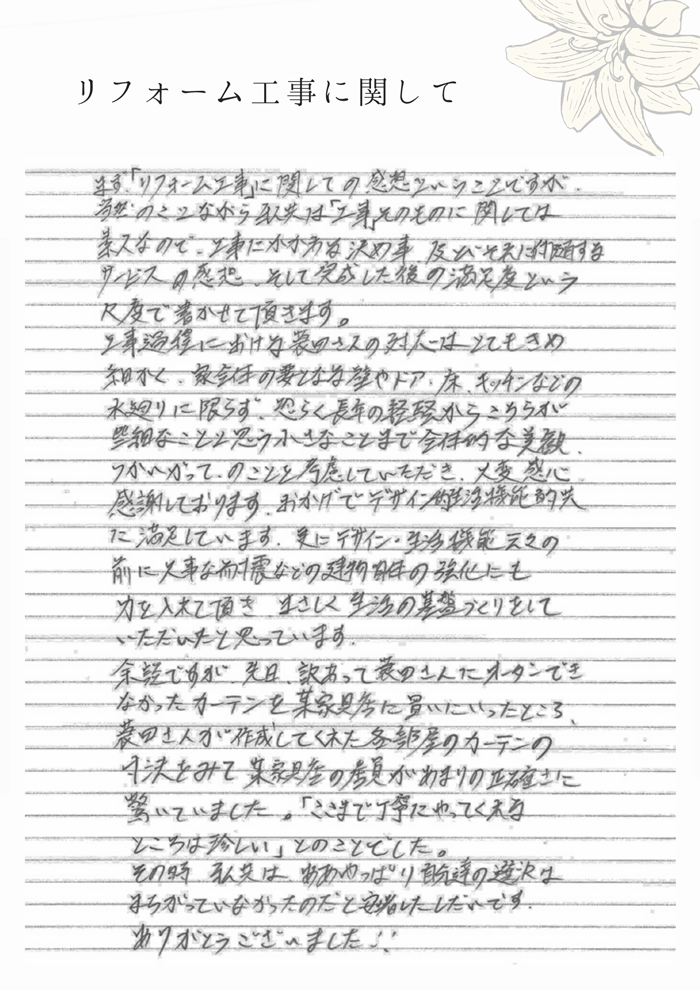 リフォーム工事に関して
まず、「リフォーム工事」に関しての感想ということですが、
当然のことながら私共は「工事」そのものに関しては
素人なので、工事にかかわる決め事 及びそれに付随する
サービスの感想、そして完成した後の満足度という
尺度で書かせて頂きます。
工事過程における蓑田さんの対応はとてもきめ
細かく、家全体の要となる壁やドア・床、キッチンなどの
水廻りに限らず、恐らく長年の経験からこちらが
些細なことと思う小さなことまで全体的な美観、
つかいがって、のことを考慮していただき、大変感心
感謝しております。おかげでデザイン的生活機能的共
に満足しています。更にデザイン・生活機能云々の
前に大事な耐震などの建物自体の強化にも
力を入れて頂き、まさしく生活の基盤づくりをして
いただいたと思っています。
余談ですが、先日、訳あって蓑田さんにオーダーでき
なかったカーテンを某家具店に買いにいったところ、
蓑田さんが作成してくれた各部屋のカーテンの
寸法をみて某家具店の店員があまりの正確さに
驚いていました。「ここまで丁寧にやってくれる
ところは珍しい」とのことでした。
その時 私共は ああやっぱり自分達の選択は
まちがっていなかったのだと安堵したしだいです。
ありがとうございました!!